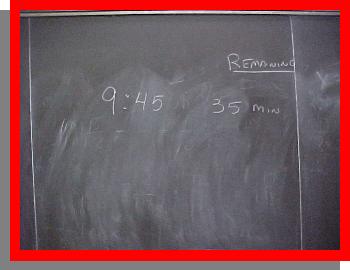 REMAINING
9:45 35 MIN